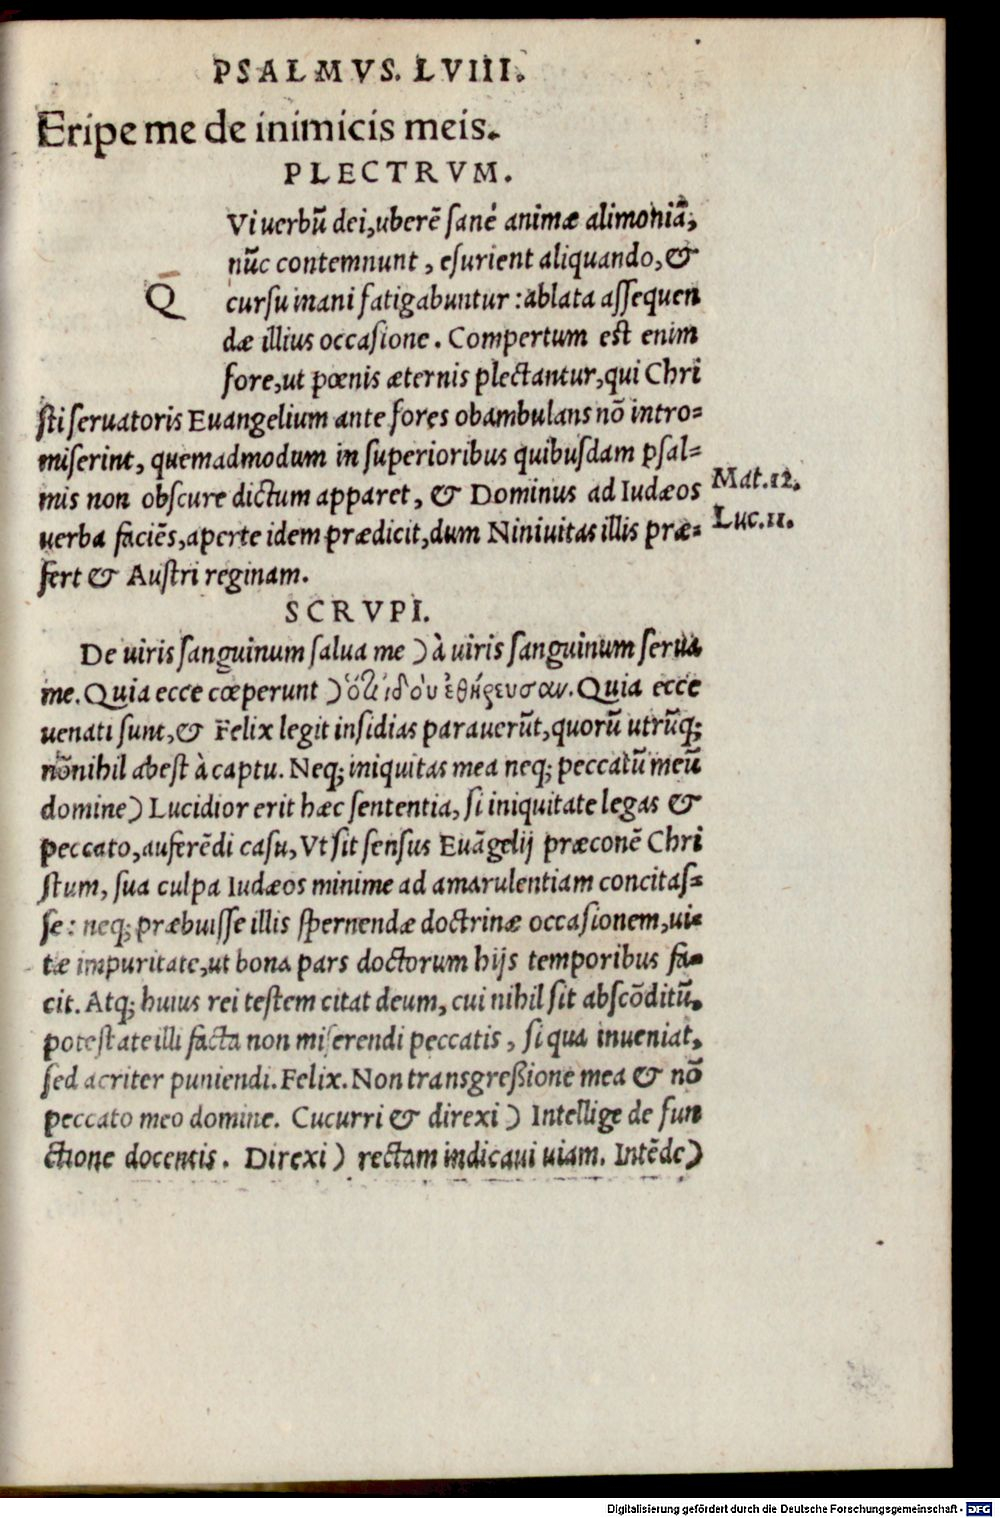 PSALMVS. LVIII.
Eripe me de inimicis meis.
PLECTRVM.
Q
Vi uerbũ dei, uberẽ sanè animæ alimoniã,
nũc contemnunt, esurient aliquando, &
cursu inani fatigabuntur: ablata assequen
dæ illius occasione. Compertum est enim
fore, ut pœnis æternis plectantur, qui Chri
sti seruatoris Euangelium ante fores obambulans nõ intro=
miserint, quemadmodum in superioribus quibusdam psal=
mis non obscure dictum apparet, & Dominus ad Iudæos
Mat.12.
uerba faciẽs, aperte idem prædicit, dum Niniuitas illis præ=
Luc.11.
fert & Austri reginam.
SCRVPI.
De uiris sanguinum salua me ) à uiris sanguinum serua
me. Quia ecce cœperunt ) ὅτι ἰδοὺ ἐθήρευσαν. Quia ecce
uenati sunt, & Felix legit insidias parauerũt, quorũ utrũq;
nõnihil abest à captu. Neq; iniquitas mea neq; peccatũ meũ
domine ) Lucidior erit hæc sententia, si iniquitate legas &
peccato, auferẽdi casu, Vt sit sensus Euãgelij præconẽ Chri
stum, sua culpa Iudæos minime ad amarulentiam concitas=
se: neq; præbuisse illis spernendæ doctrinæ occasionem, ui=
tæ impuritate, ut bona pars doctorum hijs temporibus fa=
cit. Atq; huius rei testem citat deum, cui nihil sit abscõditũ,
potestate illi facta non miserendi peccatis, si qua inueniat,
sed acriter puniendi. Felix. Non transgreßione mea & nõ
peccato meo domine. Cucurri & direxi ) Intellige de fun
ctione docentis. Direxi ) rectam indicaui uiam. Intẽde )
Digitalisierung gefördert durch die Deutsche Forschungsgemeinschaft - DFG